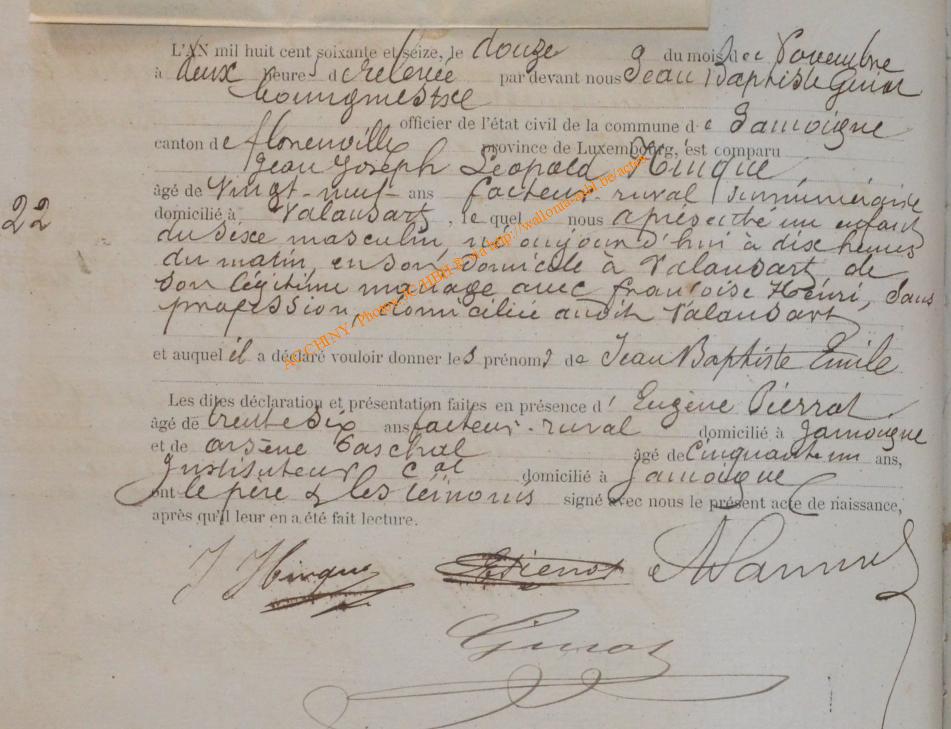 L'AN mil huit cent soixante et seize, le douze du mois de Novembre
à deux heures de relevée par devant nous Jean Baptiste Guiot
bourgmestre
officier de l'état civil de la commune de Jamoigne
canton de florenville province de Luxembourg, est comparu
Jean Joseph Léopold Hinque
âgé de Vingt-neuf ans facteur-rural surnuméraire
domicilié à Valansart, lequel nous a présenté un enfant
du sexe masculin, né aujourd'hui à dix heures
du matin, en son domicile à Valansart, de
son légitime mariage avec françoise Henri, sans
profession, domiciliée audit Valansart
22
et auquel il a déclaré vouloir donner les prénoms de Jean Baptiste Emile
Les dites déclaration et présentation faites en présence d'Eugène Pierrot
âgé de trente six ans facteur-rural domicilié à Jamoigne
et de arsène âgé de Cinquante un ans,
Instituteur cal domicilié à Jamoigne
ont le père & les témoins signé avec nous le présent acte de naissance,
après qu'il leur en a été fait lecture.
J Hinque
Guiot
http://wallonia.asbl.be/actes